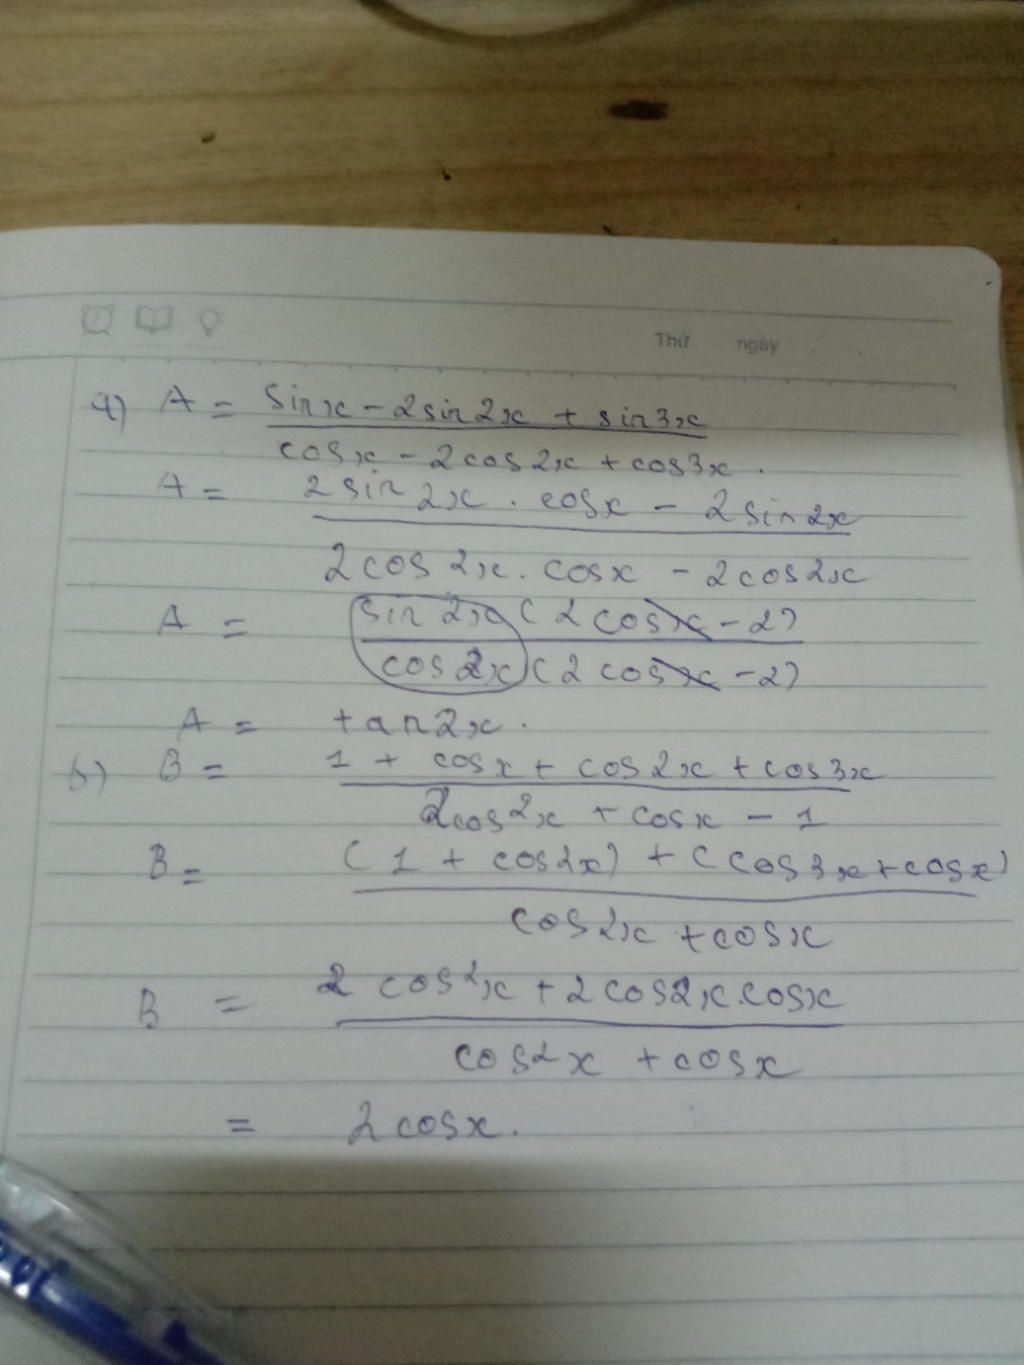 Thứ ngày
a) A = (sinx - 2sin2x + sin3x) / (cosx - 2cos2x + cos3x).
A = (2sin2x . cosx - 2sin2x) / (2cos2x. cosx - 2cos2x)
A = (sin2x(2cosx - 2)) / (cos2x(2cosx - 2))
A = tan2x.
b) B = (1 + cosx + cos2x + cos3x) / (2cos²x + cosx - 1)
B = ((1 + cos2x) + (cos3x + cosx)) / (cos2x + cosx)
B = (2cos²x + 2cos2x.cosx) / (cos2x + cosx)
= 2cosx.